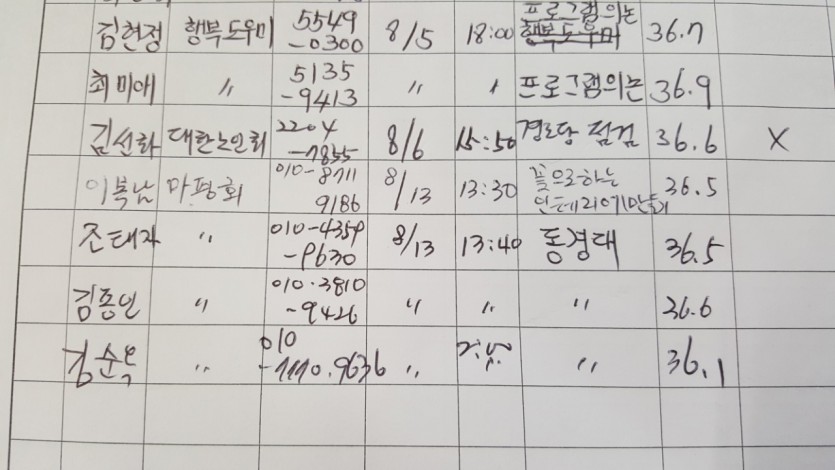 김현정 행복도우미 5549-0300 8/5 18:00 프로그램의논 행복도우미 36.7
최미애 〃 5135-9413 〃 〃 프로그램의논 36.9
김선화 대한노인회 2204-7855 8/6 15:50 경로당 점검 36.6 X
이복남 마평회 010-8711 9186 8/13 13:30 꽃으로하는 인테리어만들기 36.5
조태자 〃 010-4359-9630 8/13 13:40 동경대 36.5
〃 010.3810-9426 〃 〃 〃 36.6
김순옥 〃 010 〃 〃 36.1